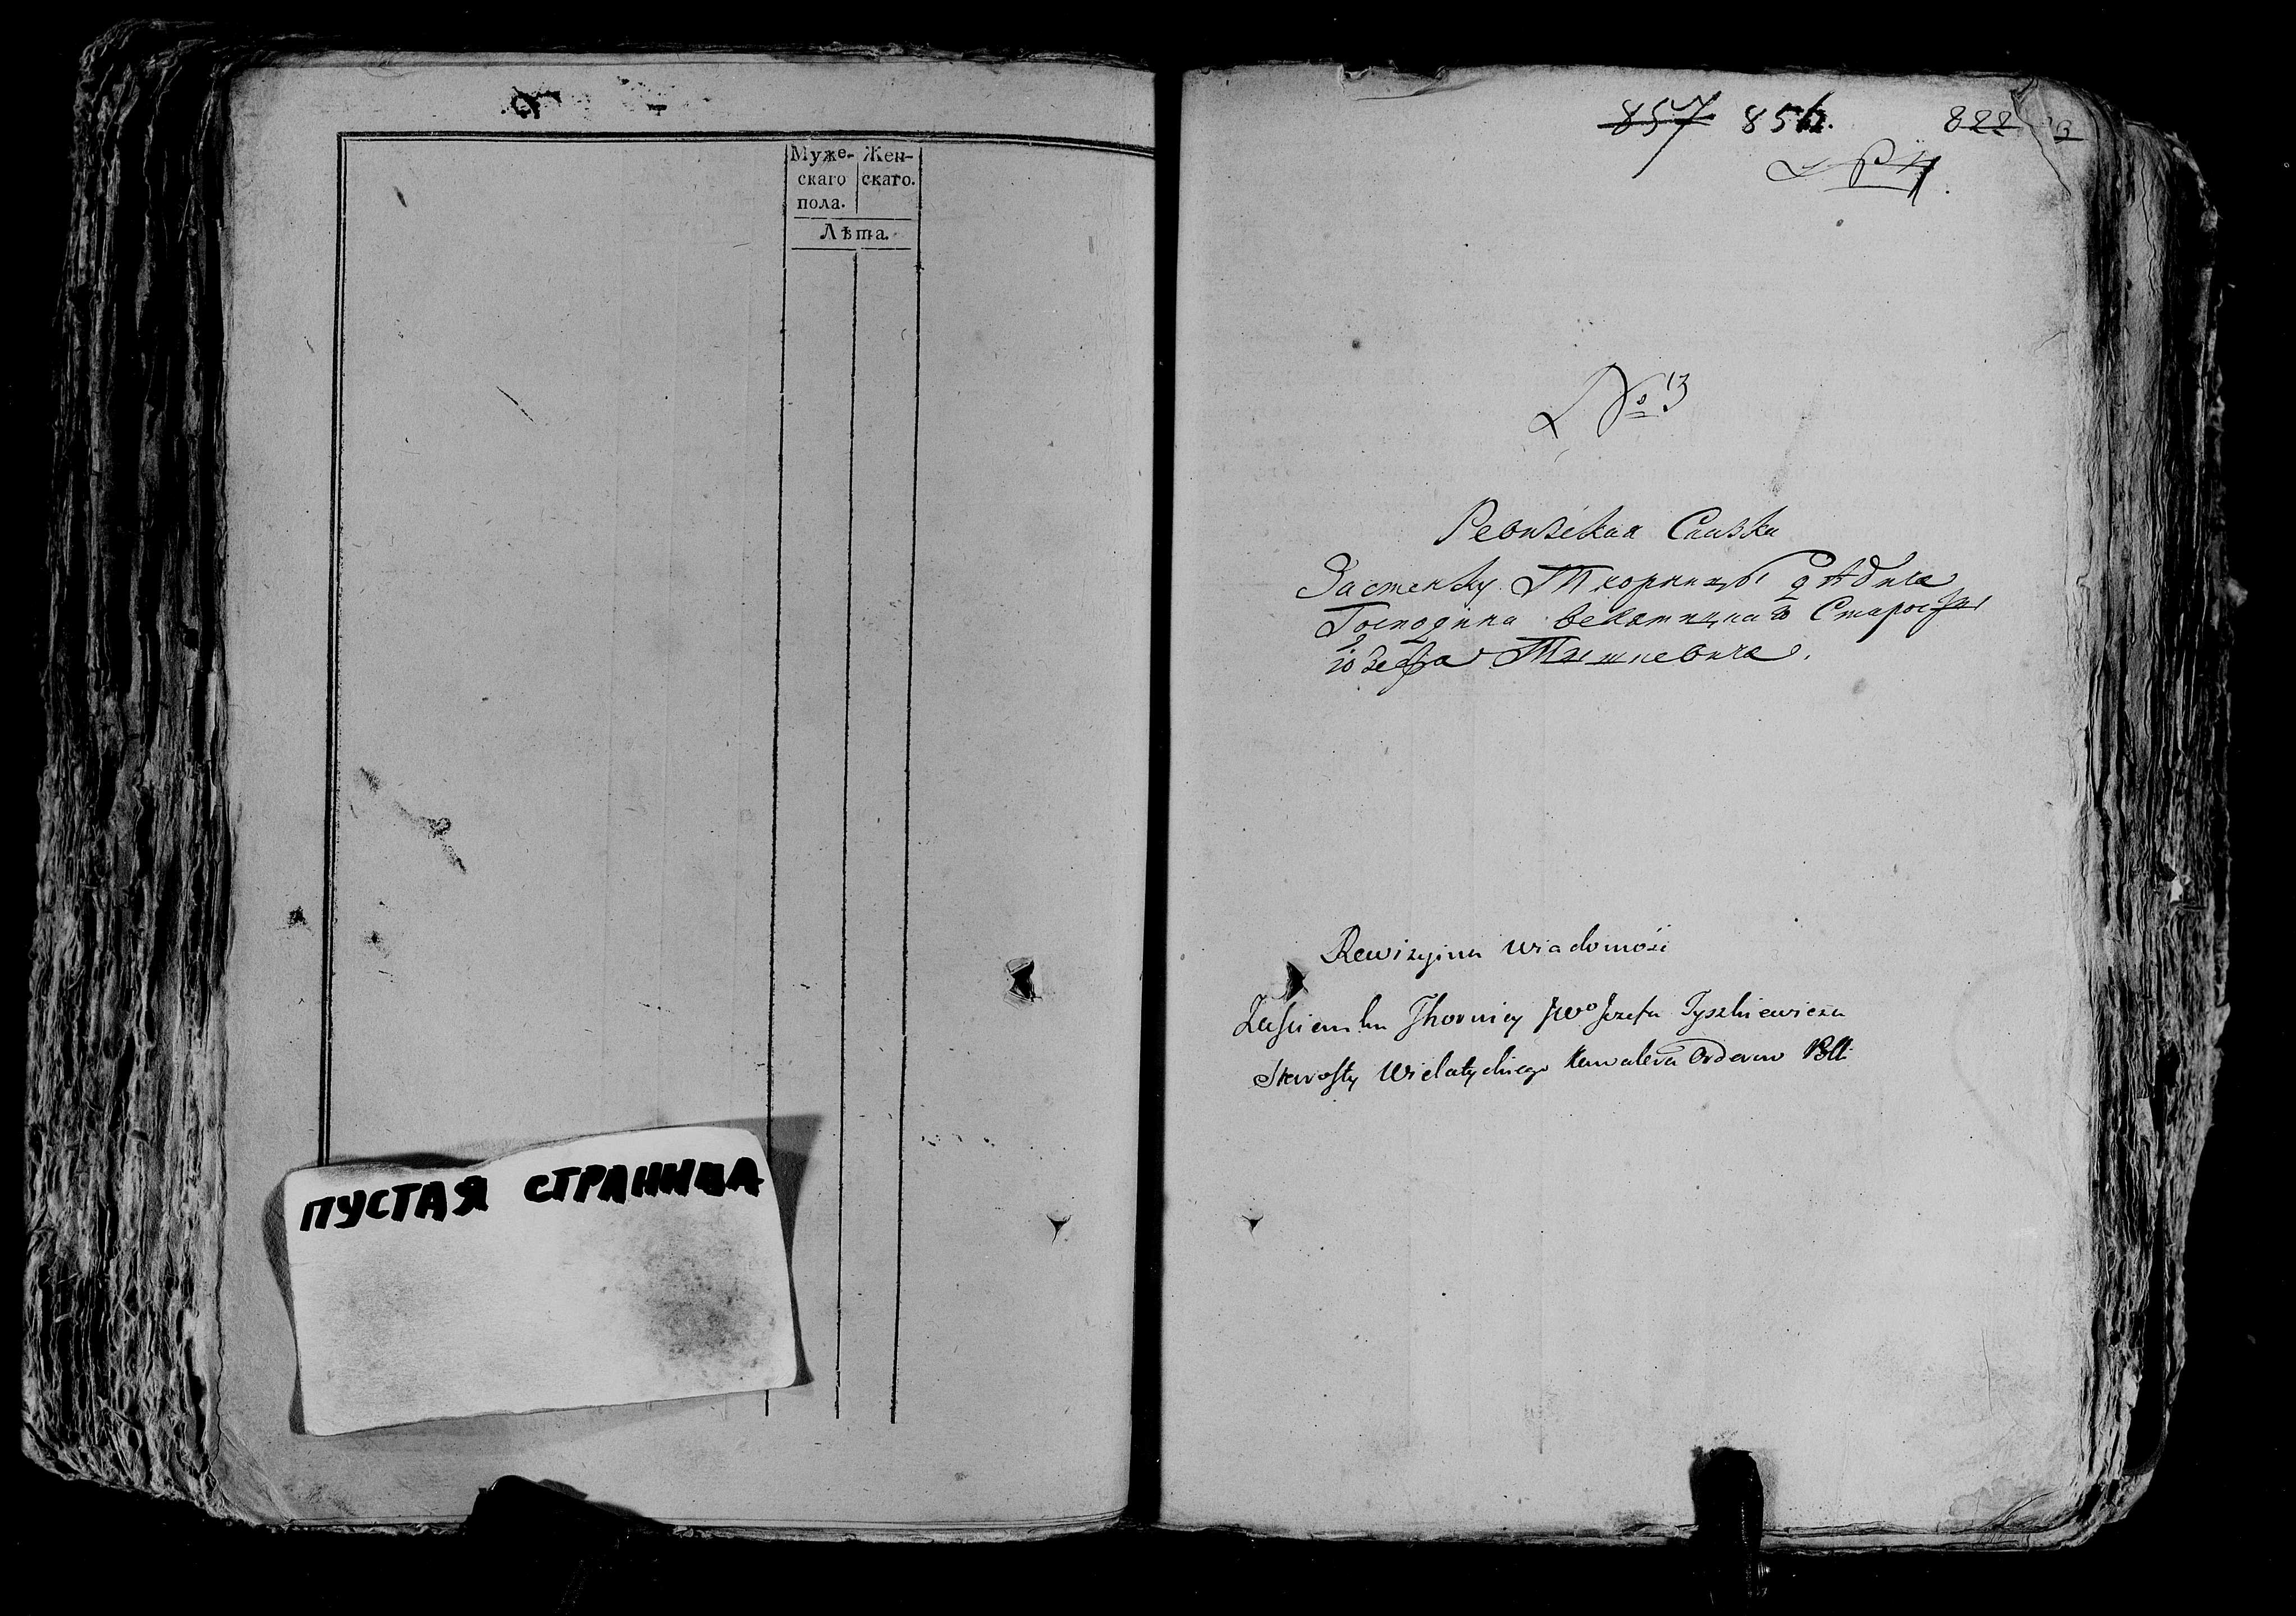 Муже- Жен-
скаго скаго.
пола.
Лѣта.
ПУСТАЯ СТРАНИЦА
857 856. 822
№ 4
№ 13
Ревизская Сказка
Застенку Тхорницы дѣдича
Господина велятицкаго Старосты
юзефа Тышкевича.
Rewizyina Wiadomość
Zaścianku Thornicy JWo Jozefa Tyszkiewicza
Starosty Wielatyckiego Kawalera Orderow Polł: